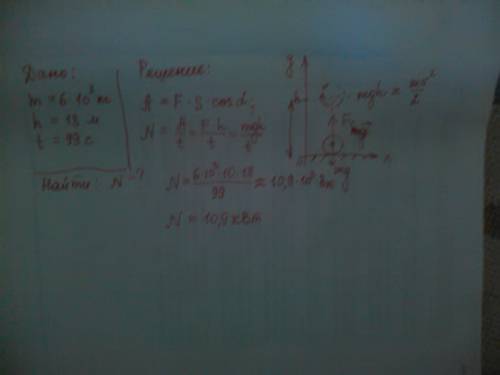 Дано:
m = 6·10³ кг
h = 18 м
t = 99 с
Найти: N - ?
Решение:
A = F · S · cos α;
N = A/t = F·h/t = mgh/t
N = 6·10³·10·18/99 ≈ 10,9·10³ Вт
N = 10,9 кВт
y
h
mgh = mv²/2
F
mg
0
mg